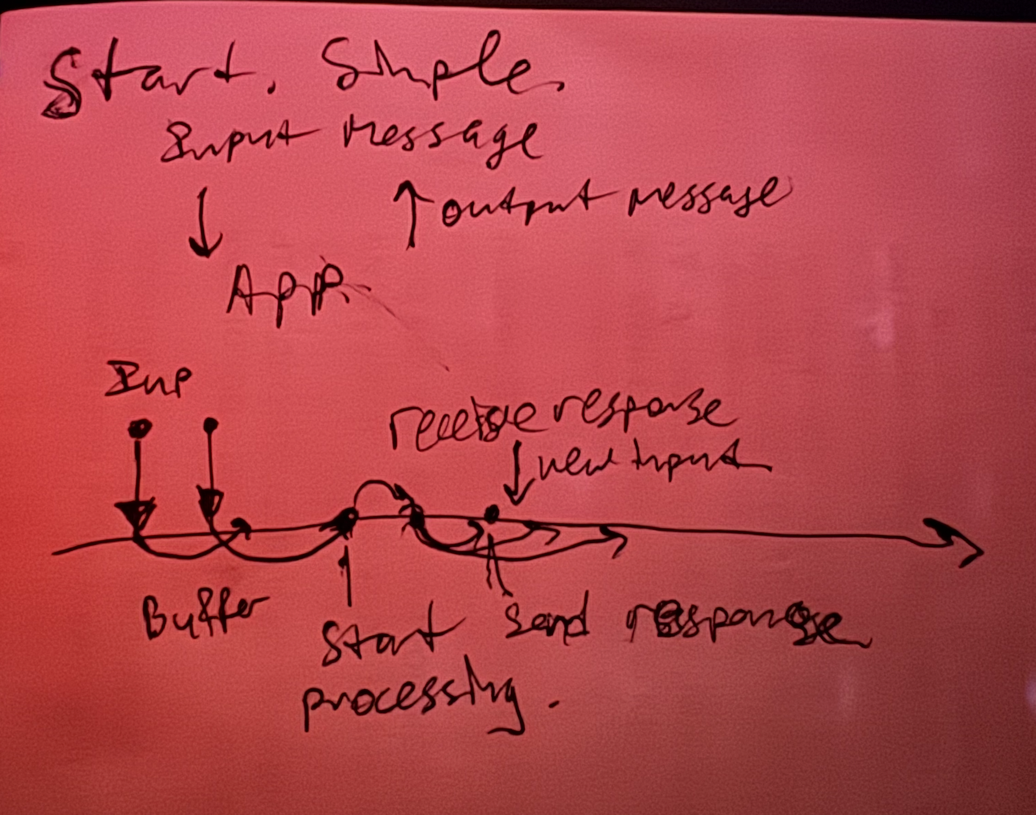 Start. Simple.
Input Message
output message
App.
Inp
receive response
new input
Buffer
Start
processing.
Send response